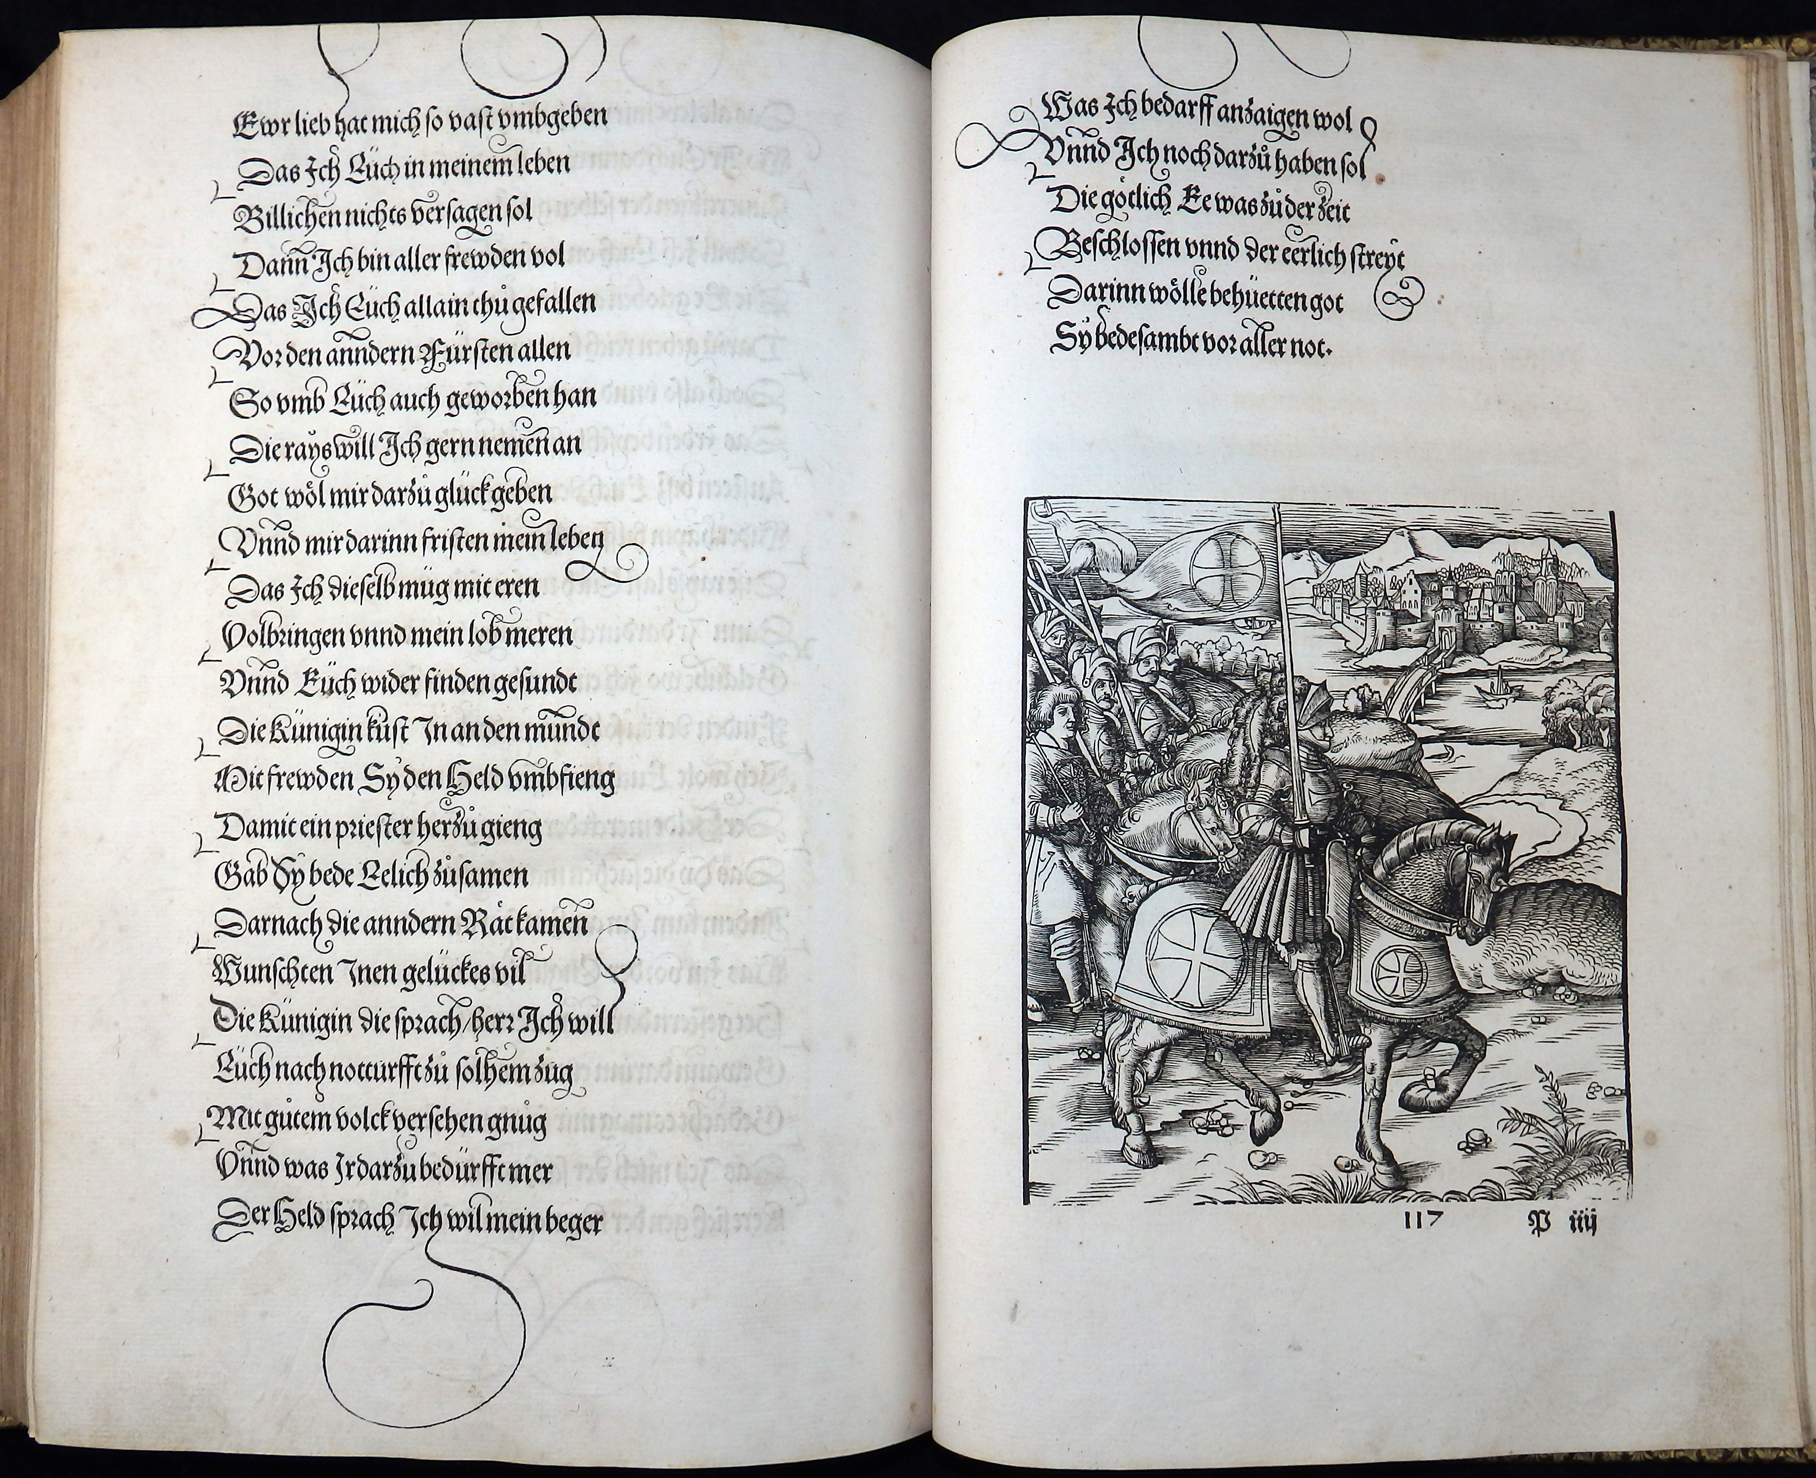 Ewr lieb hat mich so vast vmbgeben
Das Ich Eüch in meinem leben
Billichen nichts versagen sol
Dann Ich bin aller frewden vol
Das Ich Eüch allain thů gefallen
Vor den anndern Fürsten allen
So vmb Eüch auch geworben han
Die rays will Ich gern nemen an
Got wöl mir darzů glück geben
Vnnd mir darinn fristen mein leben
Das Ich dieselb müg mit eren
Volbringen vnnd mein lob meren
Vnnd Eüch wider finden gesundt
Die Künigin küst In an den mundt
Mit frewden Sy den Held vmbfieng
Damit ein priester herzů gieng
Gab Sy bede Eelich zůsamen
Darnach die anndern Rät kamen
Wunschten Inen gelückes vil
Die Künigin die sprach/herr Ich will
Eüch nach notturfft zů solhem zug
Mit gůtem volck versehen gnůg
Vnnd was Ir darzů bedürfft mer
Der Held sprach Ich wil mein beger
Was Ich bedarff anzaigen wol
Vnnd Ich noch darzů haben sol
Die götlich Ee was zů der zeit
Beschlossen vnnd der eerlich streyt
Darinn wölle behüetten got
Sy bedesambt vor aller not.
117 P iiij